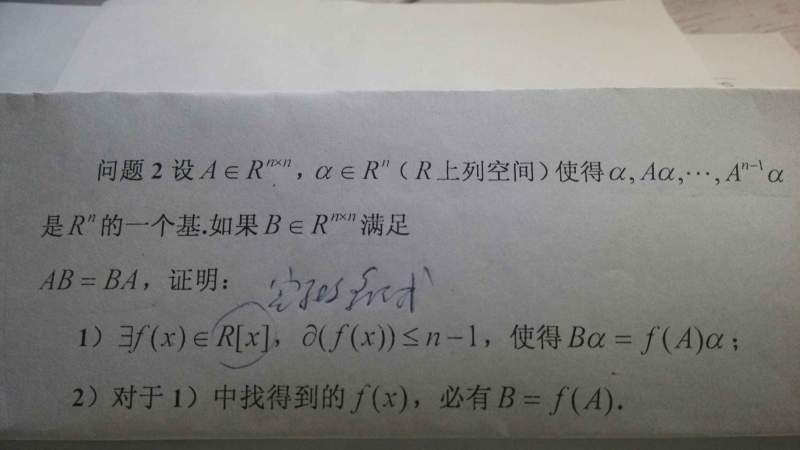 问题 2 设 A ∈ R^{n×n}，α ∈ R^n（R 上列空间）使得 α, Aα, ⋯, A^{n-1}α
是 R^n 的一个基.如果 B ∈ R^{n×n} 满足
AB = BA，证明：
1）∃f(x) ∈ R[x]，∂(f(x)) ≤ n−1，使得 Bα = f(A)α；
2）对于 1）中找得到的 f(x)，必有 B = f(A).